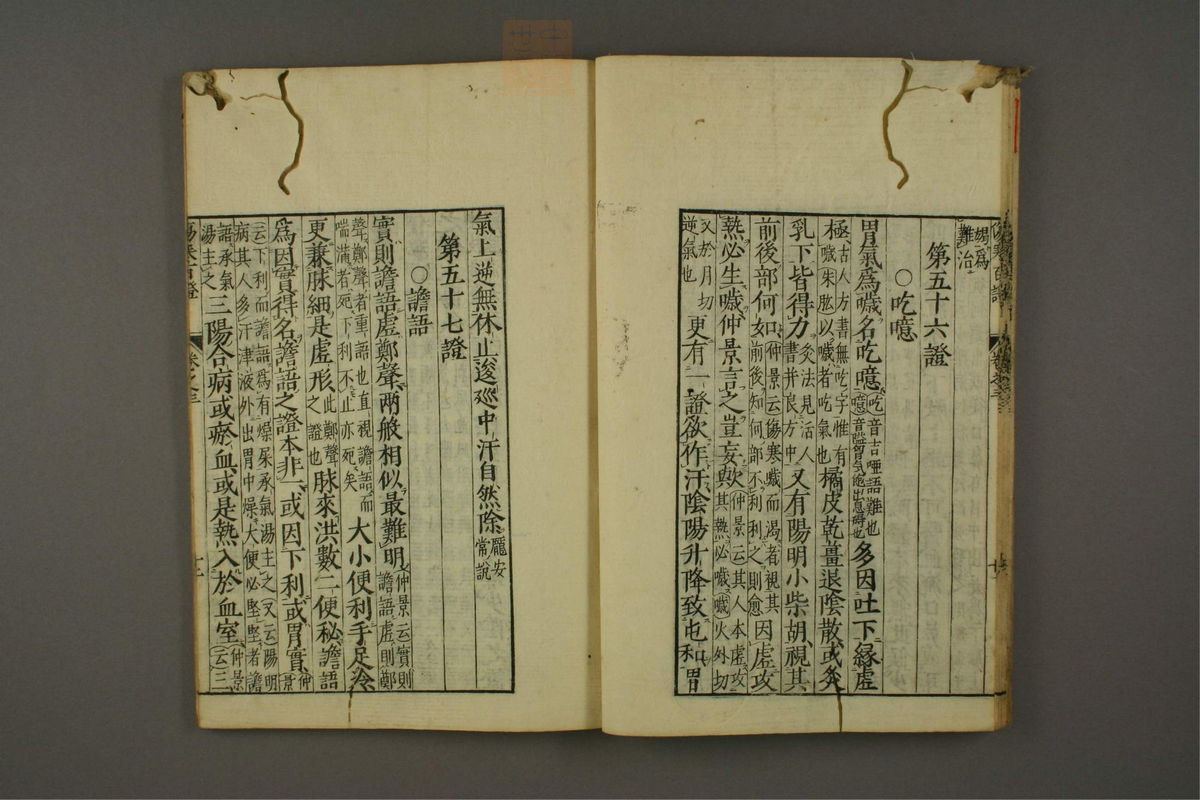 竭爲
難治
第五十六證
○吃噫
胃氣爲噦名吃噫吃音吉啞語難也
噫音
多因吐下緣虛
極古人方書無吃字惟有
噦朱肱以噦者吃氣也橘皮乾薑退陰散或灸
乳下皆得力灸法見活人
書并良方中又有陽明小柴胡視其
前後部何如仲景云傷寒噦而渴者視其
前後知何部不利利之則愈因虛攻
熱必生噦仲景言之豈妄歟仲景云其人本虛攻
其熱必噦噦火外切
又於月切
逆氣也更有一證欲作汗陰陽升降致屯和胃
氣上逆無休止逡廵中汗自然除龐安
常說
第五十七證
○譫語
實則譫語虛鄭聲兩般相似最難明仲景云實則
譫語虛則鄭
聲鄭聲者重語也直視譫語而
喘滿者死下利不止亦死矣大小便利手足冷
更兼脉細是虛形此鄭聲
之證也脉來洪數二便秘譫語
爲因實得名譫語之證本非一或因下利或胃實仲景
云下利而譫語爲有燥屎承氣湯主之又云陽明
病其人多汗津液外出胃中燥大便必堅堅者譫
語承氣
湯主之三陽合病或瘀血或是熱入於血室仲景
云三
傷寒百證
卷之三